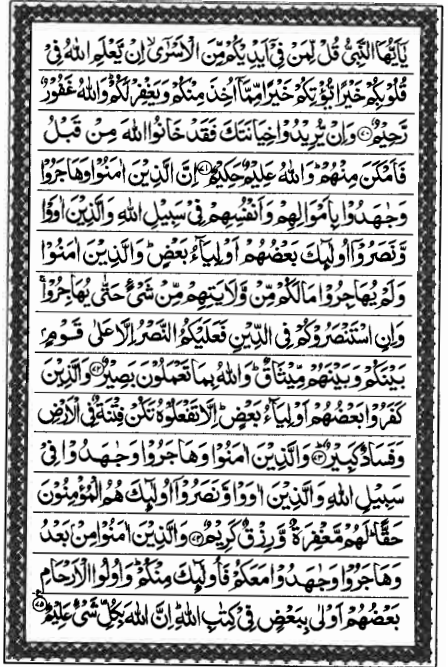 يٰۤاَيُّهَا النَّبِيُّ قُلْ لِّمَنْ فِيْۤ اَيْدِيْكُمْ مِّنَ الْاَسْرٰۤى اِنْ يَّعْلَمِ اللّٰهُ فِيْ
قُلُوْبِكُمْ خَيْرًا يُّؤْتِكُمْ خَيْرًا مِّمَّاۤ اُخِذَ مِنْكُمْ وَيَغْفِرْ لَكُمْ ؕ وَاللّٰهُ غَفُوْرٌ
رَّحِيْمٌ ﴿۷۰﴾ وَاِنْ يُّرِيْدُوْا خِيَانَتَكَ فَقَدْ خَانُوا اللّٰهَ مِنْ قَبْلُ
فَاَمْكَنَ مِنْهُمْ ؕ وَاللّٰهُ عَلِيْمٌ حَكِيْمٌ ﴿۷۱﴾ اِنَّ الَّذِيْنَ اٰمَنُوْا وَهَاجَرُوْا
وَجٰهَدُوْا بِاَمْوَالِهِمْ وَاَنْفُسِهِمْ فِيْ سَبِيْلِ اللّٰهِ وَالَّذِيْنَ اٰوَوْا
وَّنَصَرُوْۤا اُولٰٓئِكَ بَعْضُهُمْ اَوْلِيَآءُ بَعْضٍ ؕ وَالَّذِيْنَ اٰمَنُوْا
وَلَمْ يُهَاجِرُوْا مَا لَكُمْ مِّنْ وَّلَايَتِهِمْ مِّنْ شَيْءٍ حَتّٰى يُهَاجِرُوْا ۚ
وَاِنِ اسْتَنْصَرُوْكُمْ فِي الدِّيْنِ فَعَلَيْكُمُ النَّصْرُ اِلَّا عَلٰى قَوْمٍۭ
بَيْنَكُمْ وَبَيْنَهُمْ مِّيْثَاقٌ ؕ وَاللّٰهُ بِمَا تَعْمَلُوْنَ بَصِيْرٌ ﴿۷۲﴾ وَالَّذِيْنَ
كَفَرُوْا بَعْضُهُمْ اَوْلِيَآءُ بَعْضٍ ؕ اِلَّا تَفْعَلُوْهُ تَكُنْ فِتْنَةٌ فِي الْاَرْضِ
وَفَسَادٌ كَبِيْرٌ ﴿۷۳﴾ وَالَّذِيْنَ اٰمَنُوْا وَهَاجَرُوْا وَجٰهَدُوْا فِيْ
سَبِيْلِ اللّٰهِ وَالَّذِيْنَ اٰوَوْا وَّنَصَرُوْۤا اُولٰٓئِكَ هُمُ الْمُؤْمِنُوْنَ
حَقًّا ؕ لَهُمْ مَّغْفِرَةٌ وَّرِزْقٌ كَرِيْمٌ ﴿۷۴﴾ وَالَّذِيْنَ اٰمَنُوْا مِنْۢ بَعْدُ
وَهَاجَرُوْا وَجٰهَدُوْا مَعَكُمْ فَاُولٰٓئِكَ مِنْكُمْ ؕ وَاُولُوا الْاَرْحَامِ
بَعْضُهُمْ اَوْلٰى بِبَعْضٍ فِيْ كِتٰبِ اللّٰهِ ؕ اِنَّ اللّٰهَ بِكُلِّ شَيْءٍ عَلِيْمٌ ﴿۷۵﴾